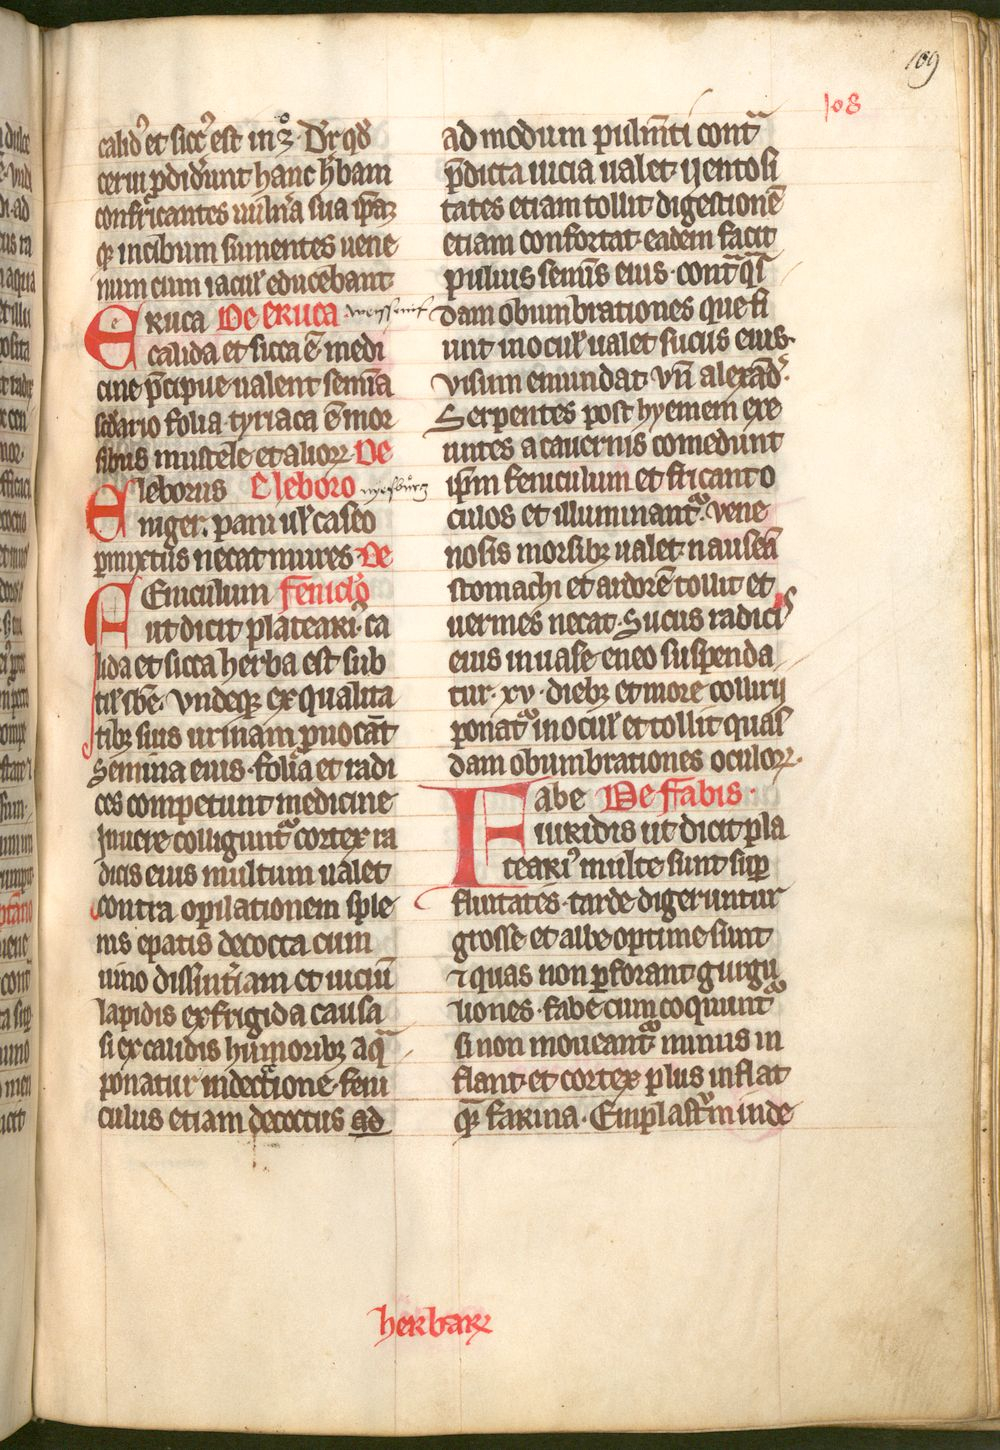 109
108
calid᷒ et sicc᷒ est in 3̊. Dr̄ qd̄
cerui ꝑdid̓unt hanc h̓bam
confricantes uuln̓a sua ip̄aꝫ
qꝫ in cibum sumentes uene
num cum iacul̓ educebant
Eruca De eruca weyssenif
calida et sicca ē medi
cine p̄cipue ualent semīa
scd̓ario folia. tyriaca ē mor
sibus mustele et alioꝝ De
Eleborus Eleboro
niger. pani ul̓ caseo
ꝑmixtus necat mures. De
Feniculum fenicl̓o
ut dicit plateari᷒. ca
lida et sicca herba est sub
til̓ sb̄e. Vndeqꝫ ex qualita
tibꝫ suis urinam ꝓuocāt
Semina eius. folia et radi
ces competunt medicine
In uere colligunt᷑ cortex ra
dicis eius multum ualet
contra opilationem sple
nis epatis decocta cum
uino dissint̓iam et uiciū
lapidis ex frigida causa
si ex calidis humoribꝫ aqͣ
ponatur in decctione. feni
culus etiam decoctus ad
ad modum pulmēti contͣ
p̄dicta uicia ualet. uentosi
tates etiam tollit digestionē
etiam confortat. eadem facit
puluis semīs eius. contͣ qͣs
dam obumbrationes que fi
unt in ocul̓ ualet sucus eius.
Visum emundat. Vn̄ alexād᷑.
Serpentes post hyemem exe
untes a cauernis comedunt
ip̄m feniculum et fricant o
culos et illuminant᷑. vene
nosis morsibꝫ ualet. nauseā
stomachi et ardorē tollit et
uermes necat. Sucus radicis
eius in uase eneo suspenda
tur. xv. diebꝫ et more collirij
ponat᷑ in ocul̓ et tollit quas
dam obumbrationes oculoꝝ.
Fabe De ffabis.
uiridis ut dicit pla
teari᷒ multe sunt suꝑ
fluitates. tarde digeruntur
grosse et albe optime sunt
⁊ quas non ꝑforant gurgu
liones. fabe cum coquunt᷑
si non moueant᷑ minus in
flant. et cortex plus inflat
qͣꝫ farina. Emplastr̄m inde
herbaꝝ